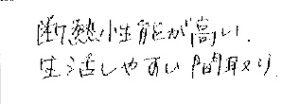 断熱性能が高い.
生活しやすい間取り